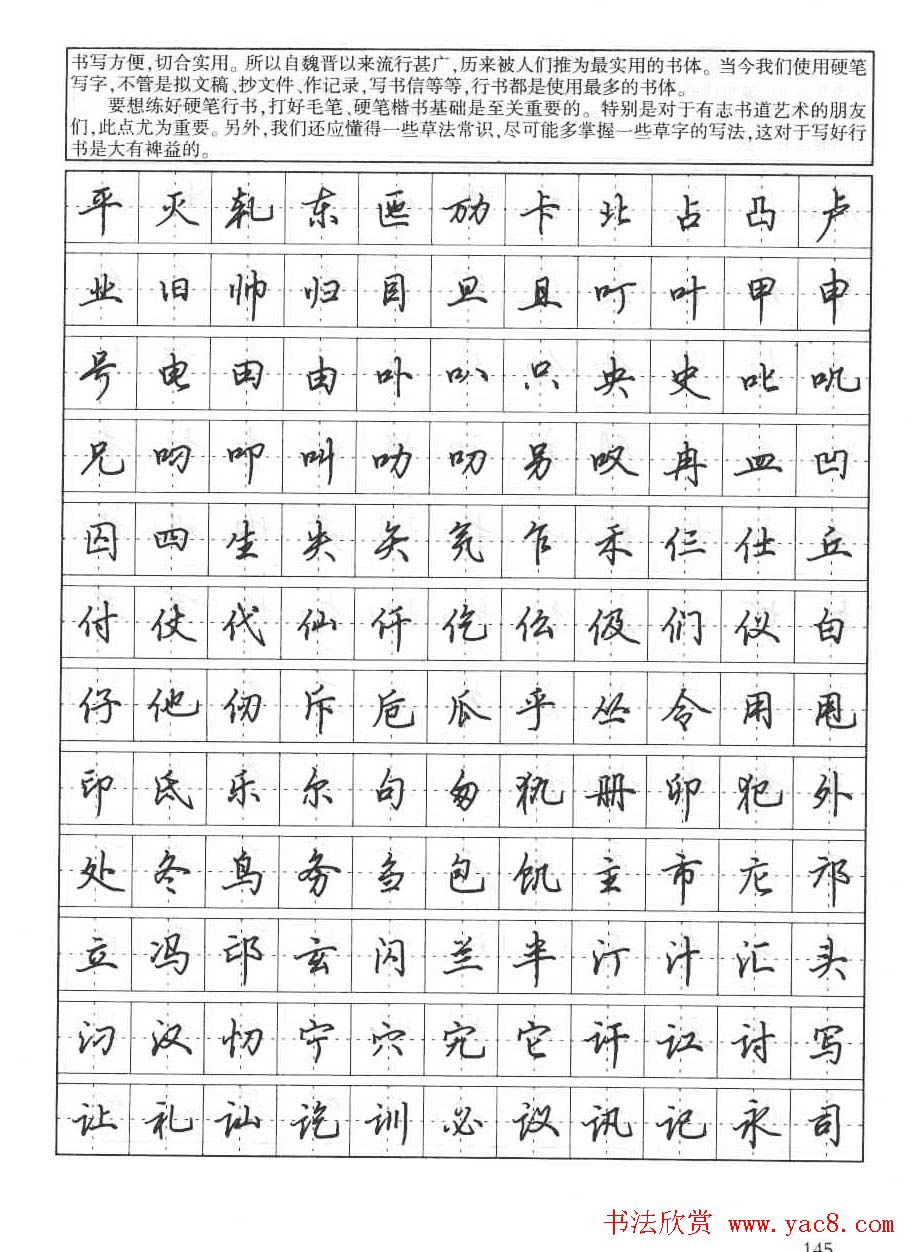 书写方便,切合实用。所以自魏晋以来流行甚广,历来被人们推为最实用的书体。当今我们使用硬笔
写字,不管是拟文稿、抄文件、作记录,写书信等等,行书都是使用最多的书体。
要想练好硬笔行书,打好毛笔、硬笔楷书基础是至关重要的。特别是对于有志书道艺术的朋友
们,此点尤为重要。另外,我们还应懂得一些草法常识,尽可能多掌握一些草字的写法,这对于写好行
书是大有裨益的。
平灭轧东匝劢卡北占凸卢
业旧帅归目旦且叮叶甲申
号电田由卟叭只央史叱叽
兄叼叩叫叻叨另叹冉皿凹
囚四生失矢氕乍禾仨仕丘
付仗代仙仟仡伝伋们仪白
仔他仞斥卮瓜乎丛令用甩
印氐乐尔句匆犰册卯犯外
处冬鸟务刍包饥主市庀邝
立冯邙玄闪兰半汀汁汇头
汈汉忉宁穴宄它讦讧讨写
让礼讪讫训必议讯记永司
书法欣赏 www.yac8.com
145